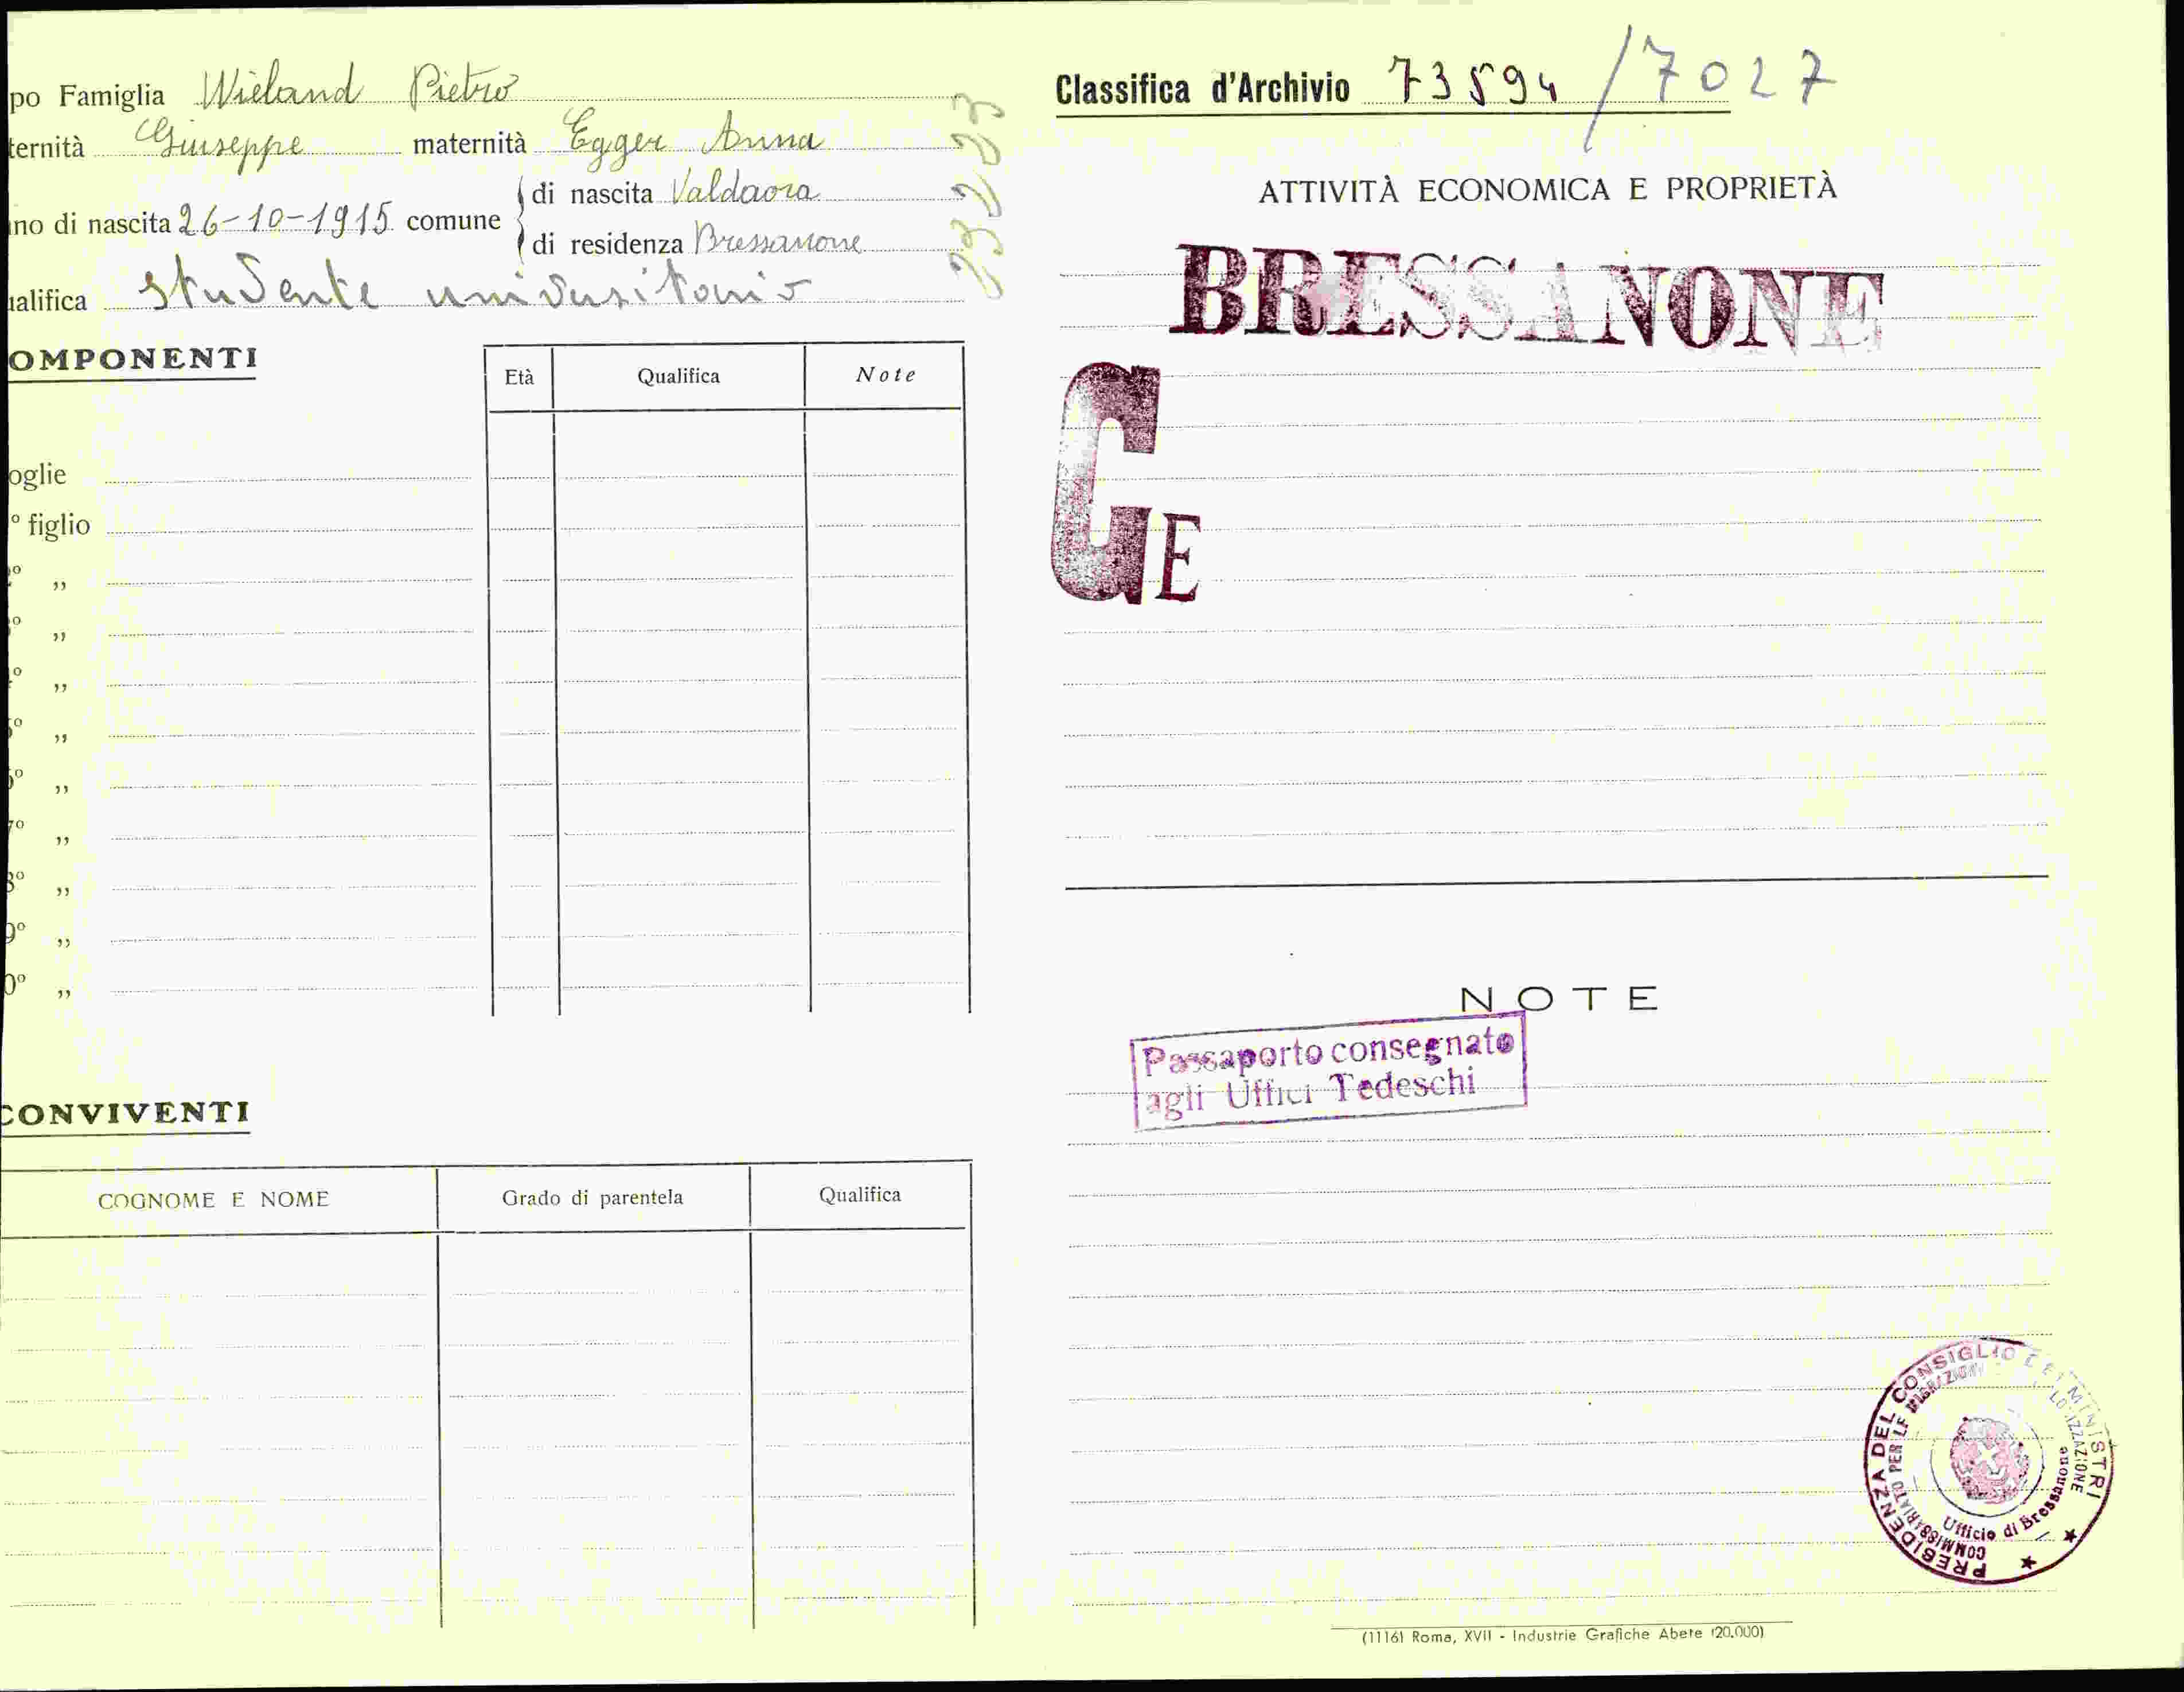 po Famiglia Wieland Pietro
ternità Giuseppe maternità Egger Anna
no di nascita 26-10-1915 comune
di nascita Valdaora
di residenza Bressanone
alifica studente universitario
OMPONENTI
Età Qualifica Note
oglie
º figlio
º „
º „
º „
º „
º „
7º „
8º „
9º „
0º „
CONVIVENTI
COGNOME E NOME Grado di parentela Qualifica
Classifica d'Archivio 73594/7027
ATTIVITÀ ECONOMICA E PROPRIETÀ
BRESSANONE
GE
NOTE
Passaporto consegnato
agli Uffici Tedeschi
PRESIDENZA DEL CONSIGLIO DEI MINISTRI
COMMISSARIATO PER LE MIGRAZIONI
Ufficio di Bressanone
(1116) Roma, XVII - Industrie Grafiche Abete (20.000)